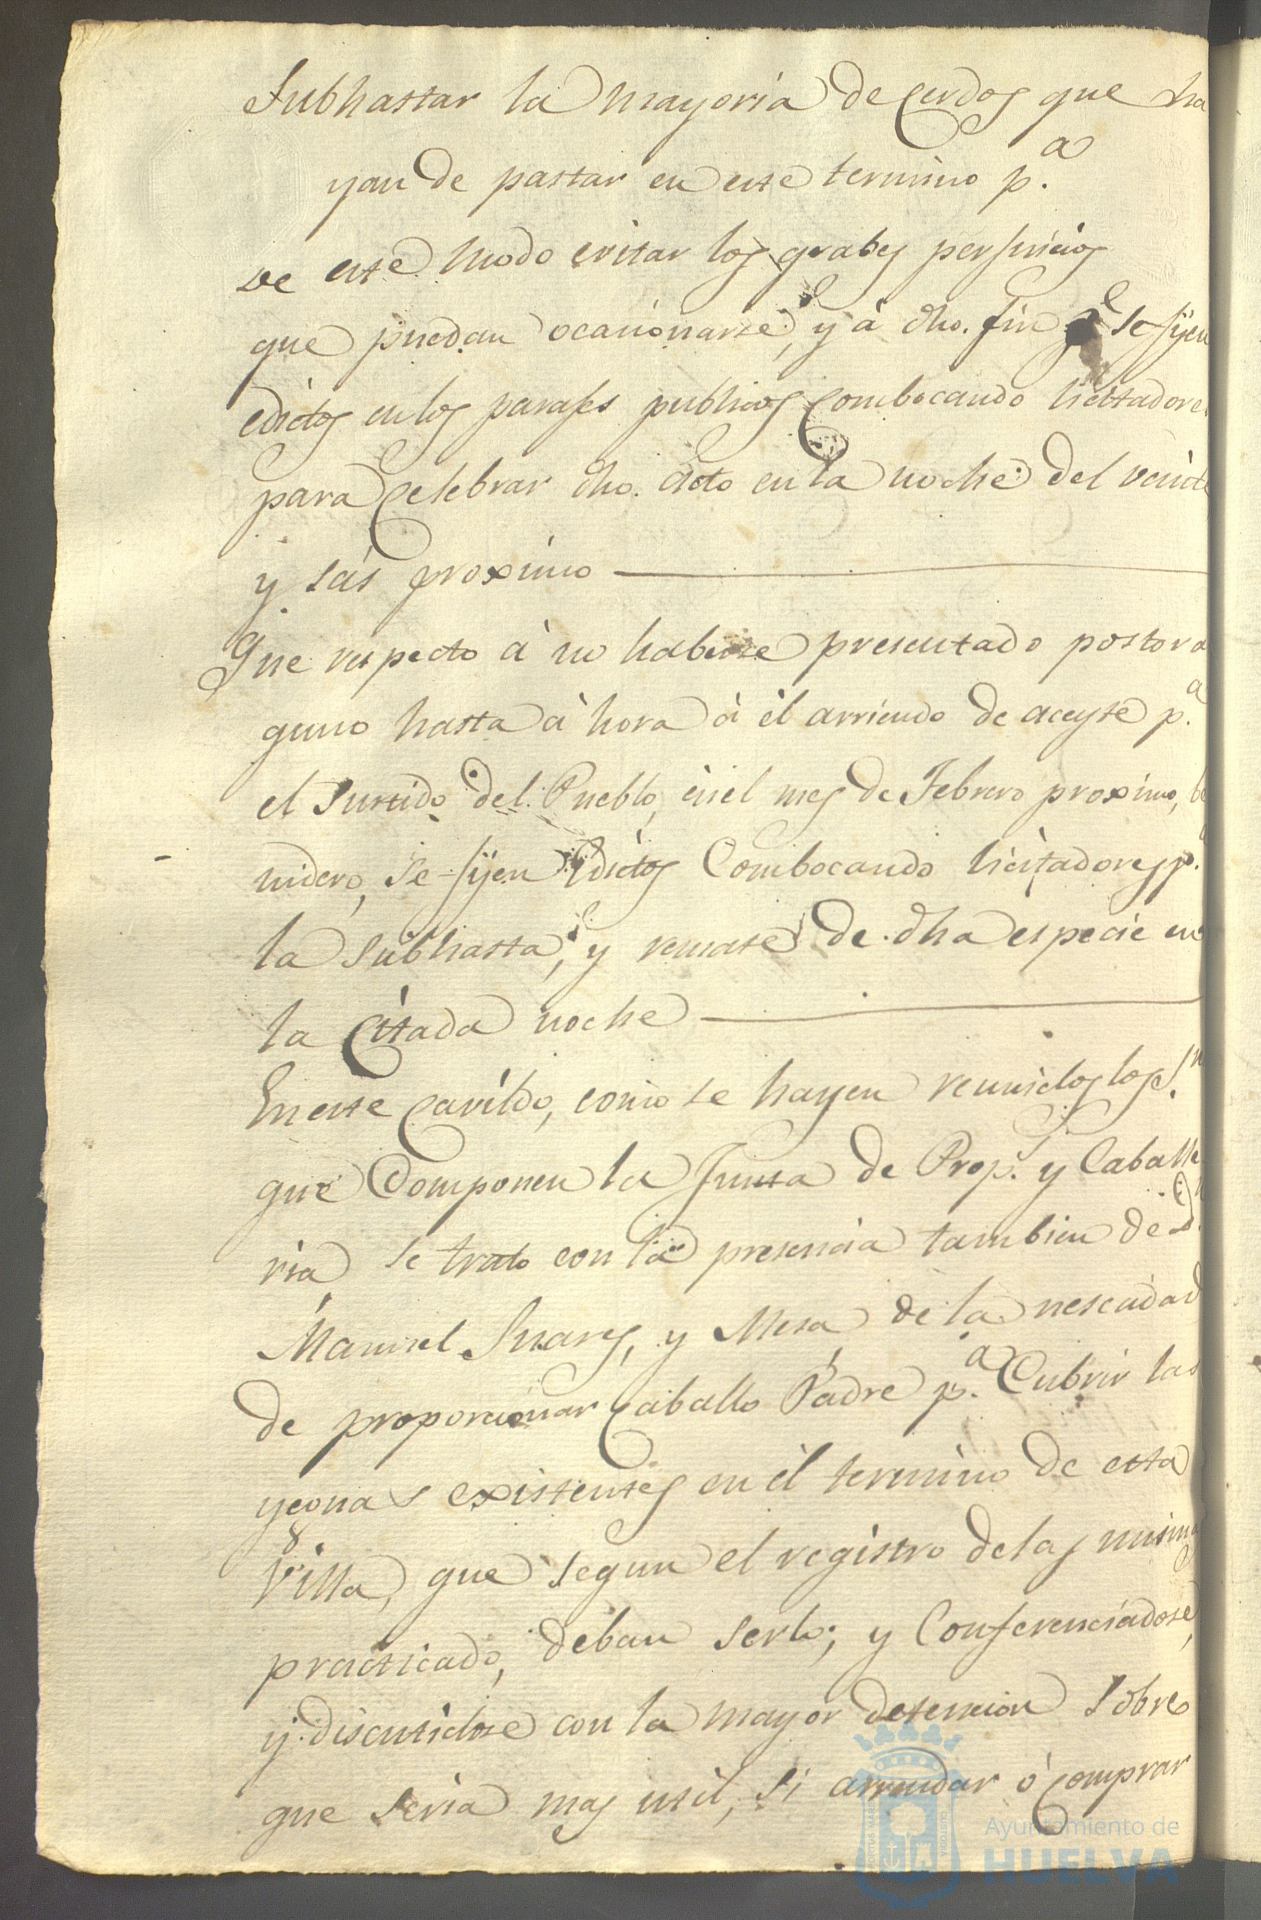 Subhastar la mayoria de Cerdos que ha
yan de pastar en este termino p.a
de este modo evitar los grabes perjuicios
que puedan ocacionarse, y à dho. fin qe se fijen
edictos en los parajes publicos Combocando licitadores
para Celebrar dho. Acto en la noche del veinte
y seis proximo
Que respecto à no haberse presentado postor a
guno hasta à hora à èl arriendo de aceyte p.a
el Surtido del Pueblo, en el mes de Febrero proximo, be
nidero, se fijen Edictos Combocando licitadores p.a
la subhasta, y remate de dha especie en
la Citada noche
En este Cavildo, como se hayen reunidos los S.res
que Componen la Junta de Prop.s y Caballe
ria se trato con la presencia tambien de D.n
Manuel Suares, y Mesa, de la nescidad
de proporcionar Caballo Padre p.a Cubrir las
yeguas existentes en èl termino de esta
Villa, que segun el registro de las mismas
practicado, deban serlo; y Conferenciadose,
y discutidose con la mayor detencion Sobre
que seria mas util, si arrendar ò Comprar
Ayuntamiento de
HUELVA